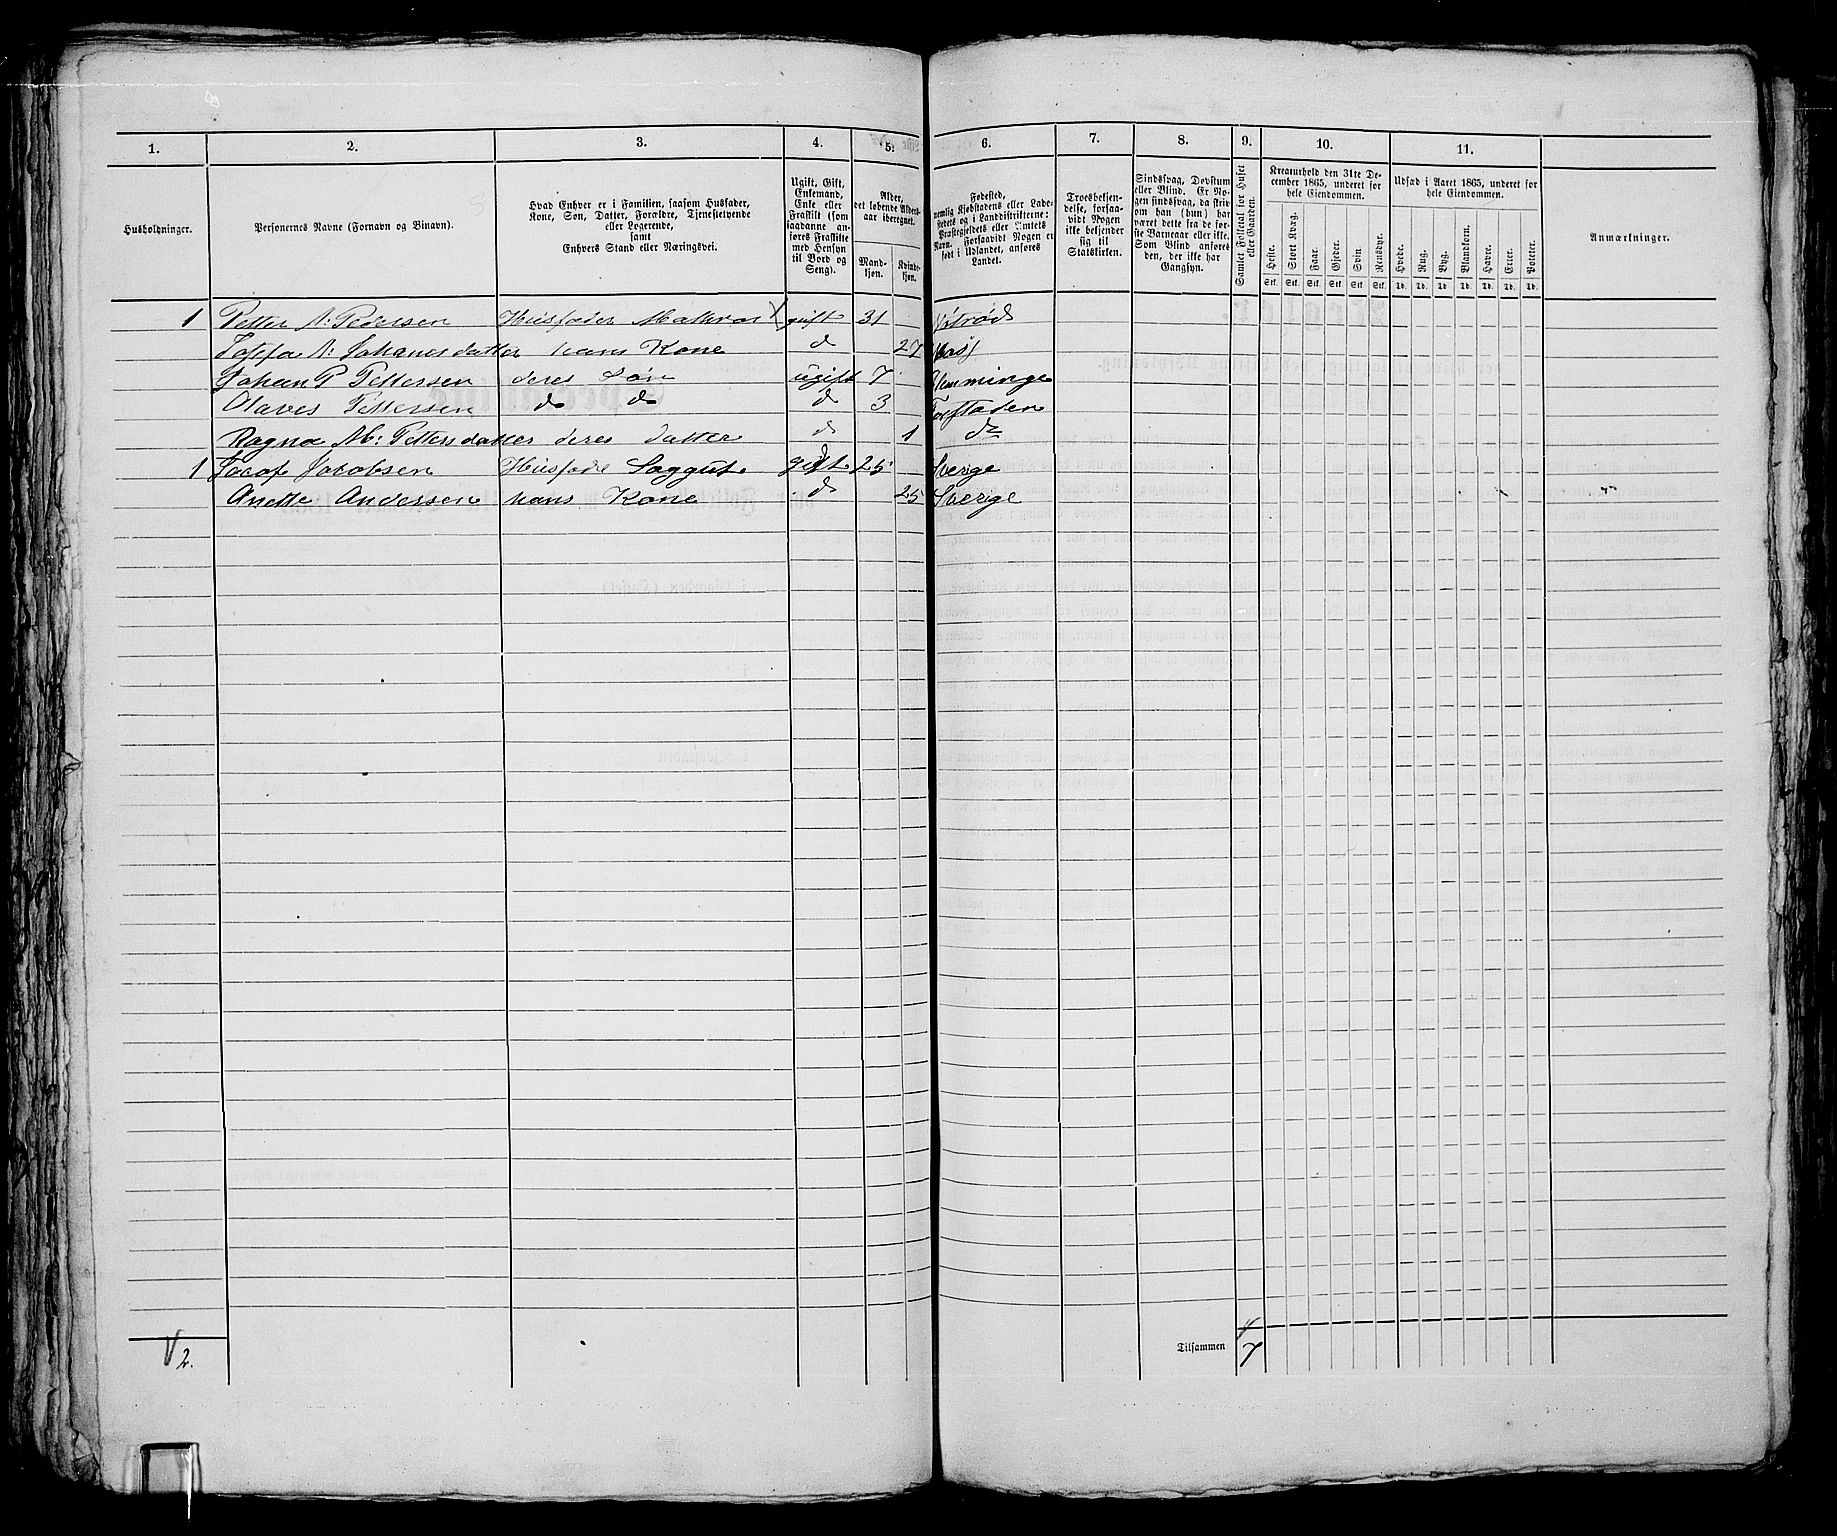 1. 2. 3. 4. 5. 6. 7. 8. 9. 10. 11.
Husholdninger.
Personernes Navne (Fornavn og Binavn).
Hvad Enhver er i Familien, saasom Husfader,
Kone, Søn, Datter, Forældre, Tjenestetyende
eller Logerende,
samt
Enhvers Stand eller Næringsvei.
Ugift, Gift,
Enkemand,
Enke eller
Fraskilt (som
saadanne an-
føres Fraskilte
med Hensyn
til Bord og
Seng).
Alder,
det løbende Alders-
aar iberegnet.
Mand-
kjøn.
Kvinde-
kjøn.
Fødested,
nemlig Kjøbstadens eller Lade-
stedets og i Landdistrikterne:
Præstegjeldets eller Amtets
Navn. Forsaavidt Nogen er
født i Udlandet, anføres
Landet.
Troesbekjen-
delse, forsaa-
vidt Nogen
ikke bekjender
sig til
Statskirken.
Sindssvag, Døvstum
eller Blind. Er No-
gen sindssvag, da skriv
om han (hun) har
været dette fra de før-
ste Barneaar eller ikke.
Som Blind anføres
den, der ikke har
Gangsyn.
Samlet Folketal for Huset
eller Gaarden.
Kreaturhold den 31te De-
cember 1865, underet for
hele Eiendommen.
Heste. Stort Kvæg. Faar. Gjeder. Svin. Rensdyr.
Stk. Stk. Stk. Stk. Stk. Stk.
Udsæd i Aaret 1865, underet for
hele Eiendommen.
Hvede. Rug. Byg. Blandkorn. Havre. Erter. Poteter.
Td. Td. Td. Td. Td. Td. Td.
Anmærkninger.
1 Petter A: Pedersen Huusfader Mattros gift 31
A: Johanesdatter hans Kone d 27
Johan P Pettersen deres Søn ugift 7
Olaves Pettersen d d d 3
Ragna M: Pettersdatter deres datter d 1 d
1 Jacob Jacobsen gift 25 Sverige
Anette Andersen hans Kone d 25 Sverige
2.
Tilsammen 7